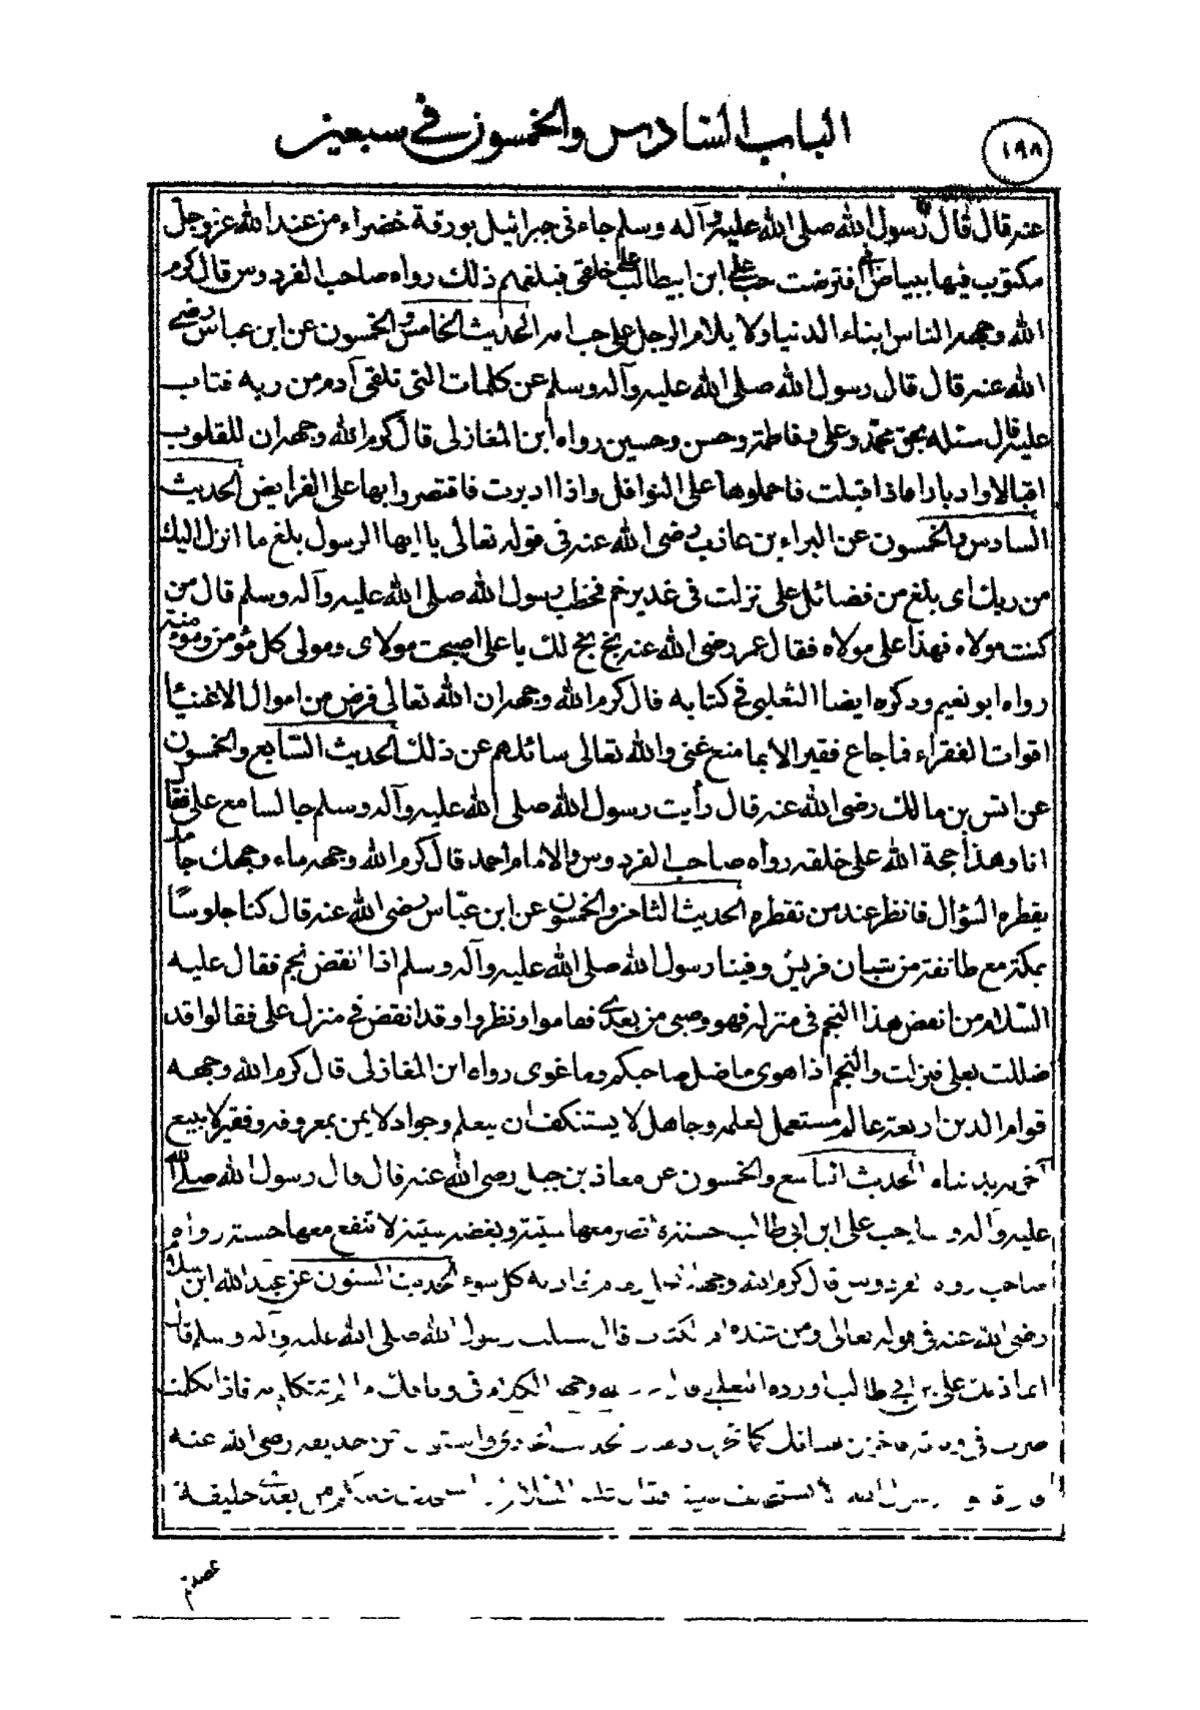 الباب السادس والخمسون في سبعين
١٩٨
عنه قال قال رسول الله صلى الله عليه وآله وسلم جاءني جبرائيل بورقة خضراء من عند الله عز وجل
مكتوب فيها ببياض افترضت حب علي ابن ابيطالب على خلقي فبلغهم ذلك رواه صاحب الفردوس قال كرم
الله وجهه الناس ابناء الدنيا ولا يلام الرجل على حب امه الحديث الخامس والخمسون عن ابن عباس رضي
الله عنه قال قال رسول الله صلى الله عليه وآله وسلم عن كلمات التي تلقى آدم من ربه فتاب
عليه قال سئله بحق محمد وعلي وفاطمة وحسن وحسين رواه ابن المغازلي قال كرم الله وجهه ان للقلوب
اقبالا وادبارا فاذا اقبلت فاحملوها على النوافل واذا ادبرت فاقتصروا بها على الفرايض الحديث
السادس والخمسون عن البراء بن عازب رضي الله عنه في قوله تعالى يا ايها الرسول بلغ ما انزل اليك
من ربك اى بلغ من فضائل علي نزلت في غدير خم فخطب رسول الله صلى الله عليه وآله وسلم قال من
كنت مولاه فهذا علي مولاه فقال عمر رضي الله عنه بخ بخ لك يا علي اصبحت مولاى ومولى كل مؤمن ومؤمنة
رواه ابو نعيم وذكره ايضا الثعلبي في كتابه قال كرم الله وجهه ان الله تعالى فرض من اموال الاغنيا
اقوات الفقراء فما جاع فقير الا بما منع غني والله تعالى سائلهم عن ذلك الحديث السابع والخمسون
عن انس بن مالك رضي الله عنه قال رأيت رسول الله صلى الله عليه وآله وسلم جالسا مع علي فقال
انا وهذا حجة الله على خلقه رواه صاحب الفردوس والامام احمد قال كرم الله وجهه ماء وجهك جامد
يقطره السؤال فانظر عند من تقطره الحديث الثامن والخمسون عن ابن عباس رضي الله عنه قال كنا جلوسا
بمكة مع طائفة من شبان قريش وفينا رسول الله صلى الله عليه وآله وسلم اذا انقض نجم فقال عليه
السلام من انقض هذا النجم في منزله فهو وصيي من بعدي فقاموا ونظروا وقد انقض في منزل علي فقالوا قد
ضللت بعلي فنزلت والنجم اذا هوى ما ضل صاحبكم وما غوى رواه ابن المغازلي قال كرم الله وجهه
قوام الدين اربعة عالم مستعمل لعلمه وجاهل لا يستنكف ان يتعلم وجواد لا يمن بمعروفه وفقير لا يبيع
آخرته بدنياه الحديث التاسع والخمسون عن معاذ بن جبل رضي الله عنه قال قال رسول الله صلى الله
عليه وآله وسلم حب علي ابن ابي طالب حسنة لا تضر معها سيئة وبغضه سيئة لا تنفع معها حسنة رواه
صاحب الفردوس قال كرم الله وجهه كل سوء الحديث الستون عن عبد الله ابن سلام
رضي الله عنه في قوله تعالى ومن عنده ام الكتاب قال سئلت رسول الله صلى الله عليه وآله وسلم قال
انما ذلك علي بن ابي طالب اورده الثعلبي وجهه الكلام في وثاقك ما لم تتكلم به فاذا تكلمت
صرت في وثاقه فاخزن لسانك كما تخزن الحديث الحادي والستون عن حذيفة رضي الله عنه
من بعدك خليفة
عصيتم